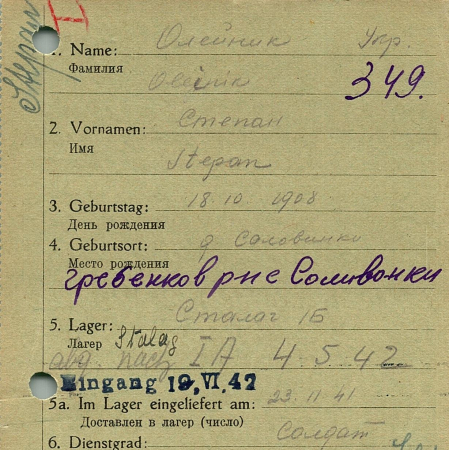 Stepan
1. Name: Олейник Укр.
Фамилия
Oleinik 349.
2. Vornamen: Степан
Имя
Stepan
3. Geburtstag: 18.10 1908
День рождения
4. Geburtsort: д Саловинки
Место рождения
гребенков р-н с Соливонки
5. Lager: Сталаг IБ
Лагер Stalag
abg. nach IA 4.5.42
Eingang 19.VI.42
5a. Im Lager eingeliefert am: 23.11 41
Доставлен в лагер (число)
6. Dienstgrad: Солдат